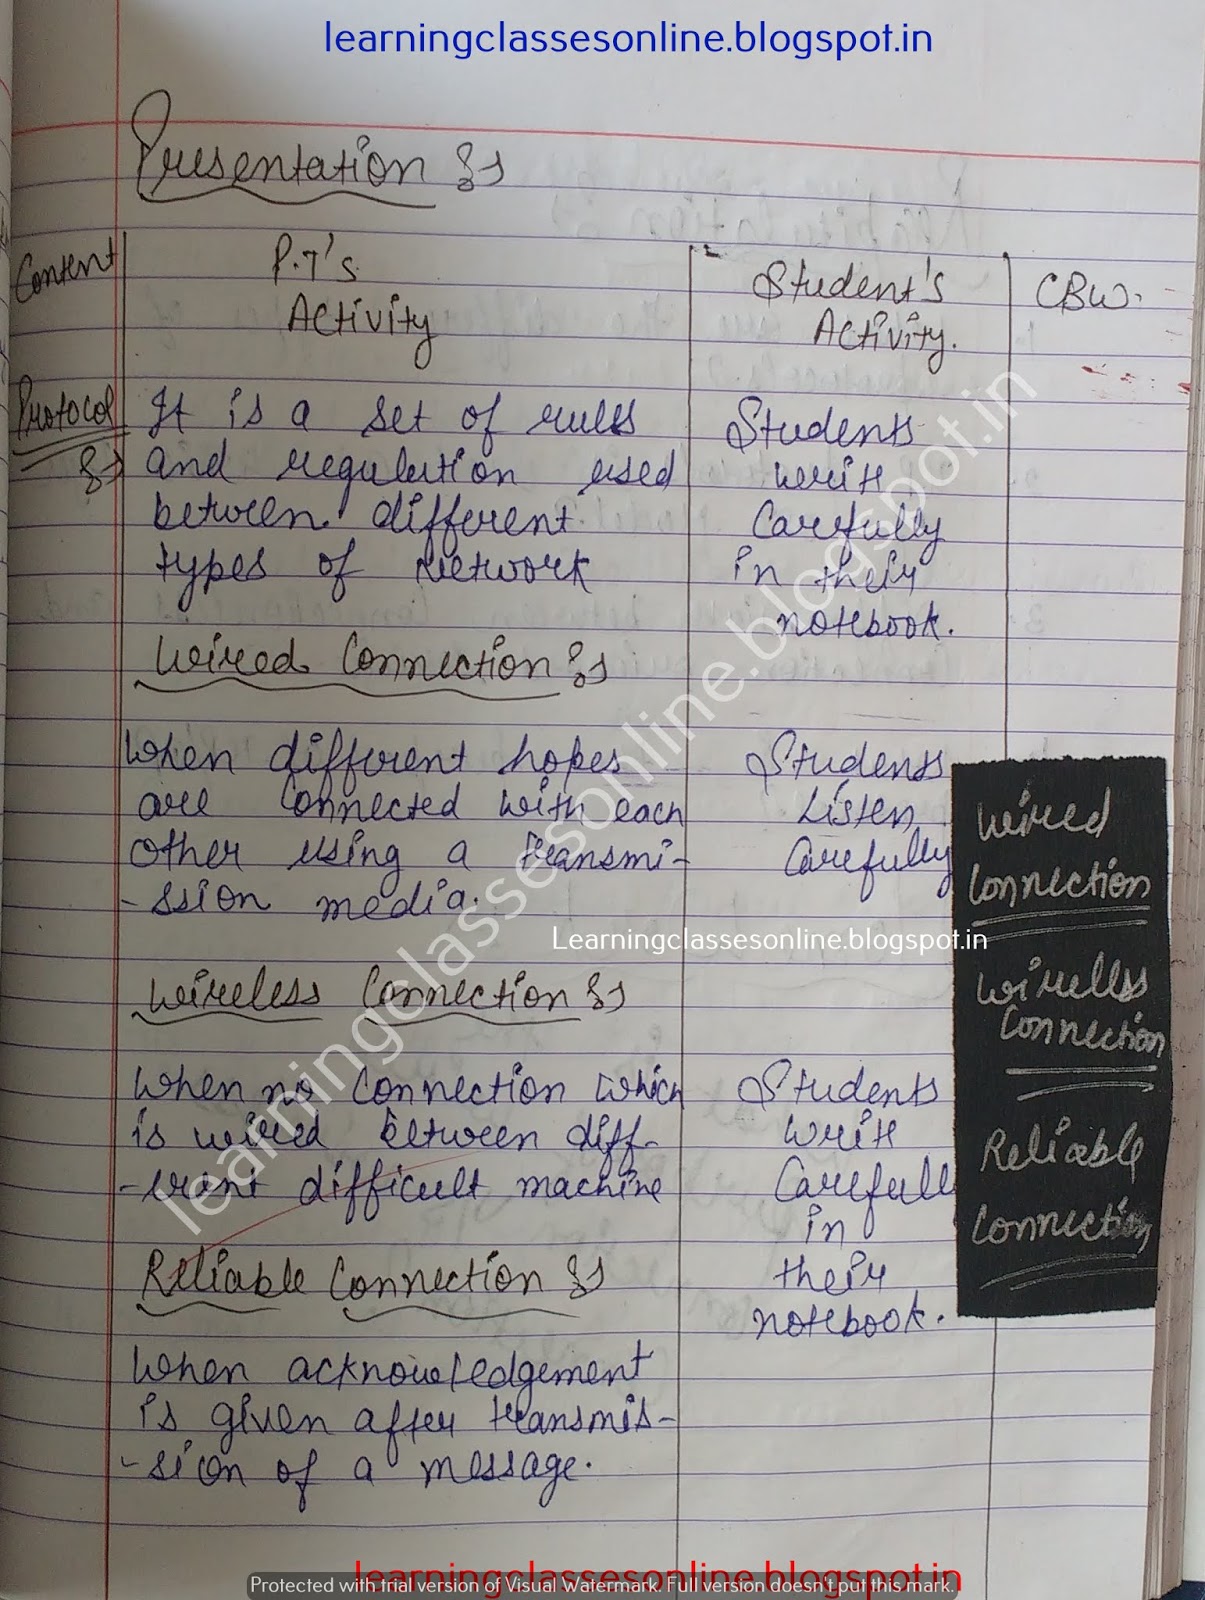 learningclassesonline.blogspot.in
Presentation :-
Content
P.T's
Activity
Student's
Activity.
CBW.
Protocol
:-
It is a set of rules
and regulution used
between different
types of Network
Students
write
Carefully
in their
notebook.
Wired Connection :-
When different hopes
are connected with each
other using a transmi-
-ssion media.
Students
Listen
Carefully
Wired
Connection
Wireless
Connection
Reliable
Connection
Learningclassesonline.blogspot.in
Wireless Connection :-
When no connection which
is wired between diff-
-erent difficult machine
Students
write
Carefull
in
their
notebook.
Reliable Connection :-
When acknowledgement
is given after transmis-
-sion of a message.
learningclassesonline.blogspot.in
learningclassesonline.blogspot.in
Protected with trial version of Visual Watermark. Full version doesn't put this mark.